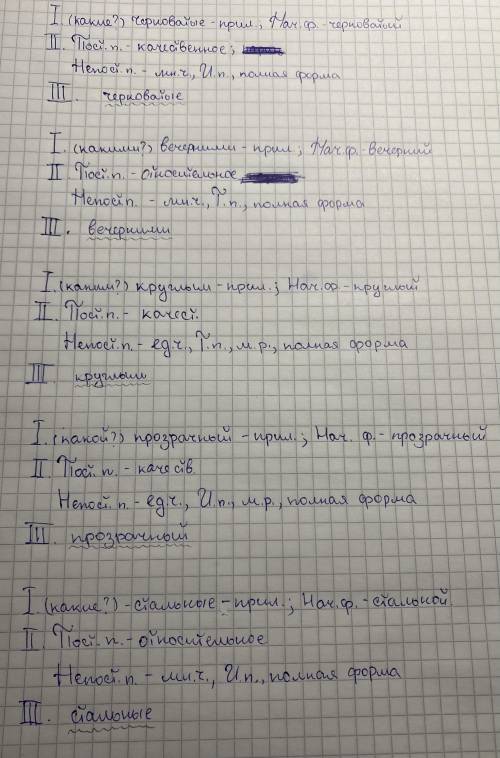 I. (какие?) черноватые - прил.; Нач. ф. - черноватый
II. Пост. п. - качественное;
Непост. п. - мн.ч., И.п., полная форма
III. черноватые
I. (какими?) вечерними - прил.; Нач. ф. - вечерний
II. Пост. п. - относительное
Непост. п. - мн.ч., Т.п., полная форма
III. вечерними
I. (каким?) круглым - прил.; Нач. ф. - круглый
II. Пост. п. - качест.
Непост. п. - ед.ч., Т.п., м.р., полная форма
III круглым
I. (какой?) прозрачный - прил.; Нач. ф. - прозрачный
II. Пост. п. - качеств.
Непост. п. - ед.ч., И.п., м.р., полная форма
III. прозрачный
I. (какие?) - стальные - прил.; Нач. ф. - стальной.
II. Пост. п. - относительное
Непост. п. - мн.ч., И.п., полная форма
III. стальные